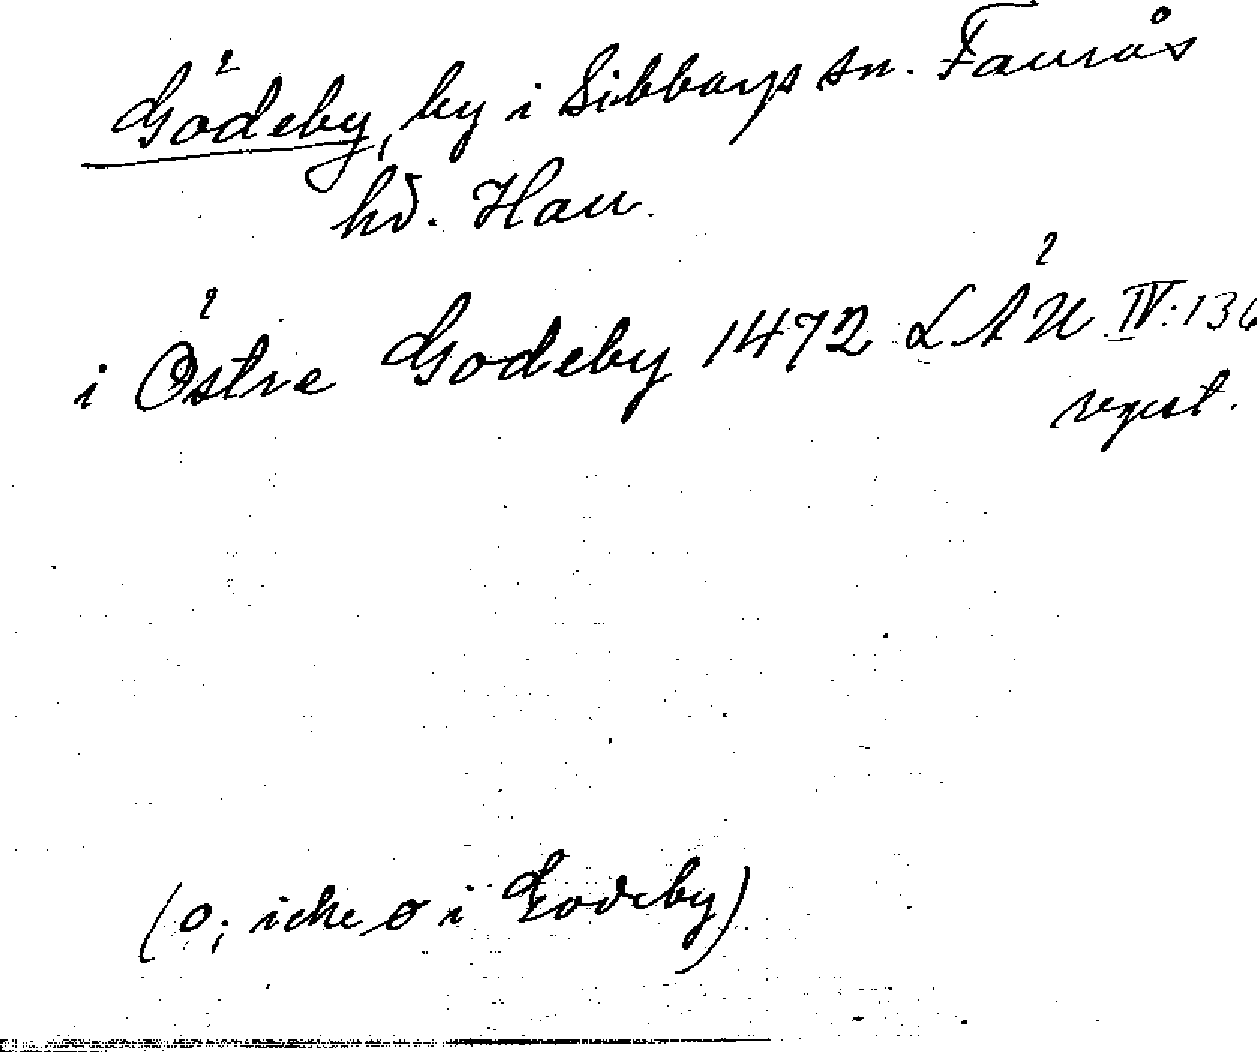 Gödeby, by i Sibbarps sn. Faurås
hd. Hall.
i Östre Godeby 1472 LÄU IV:136
regest.
(o, icke ø i Godeby)